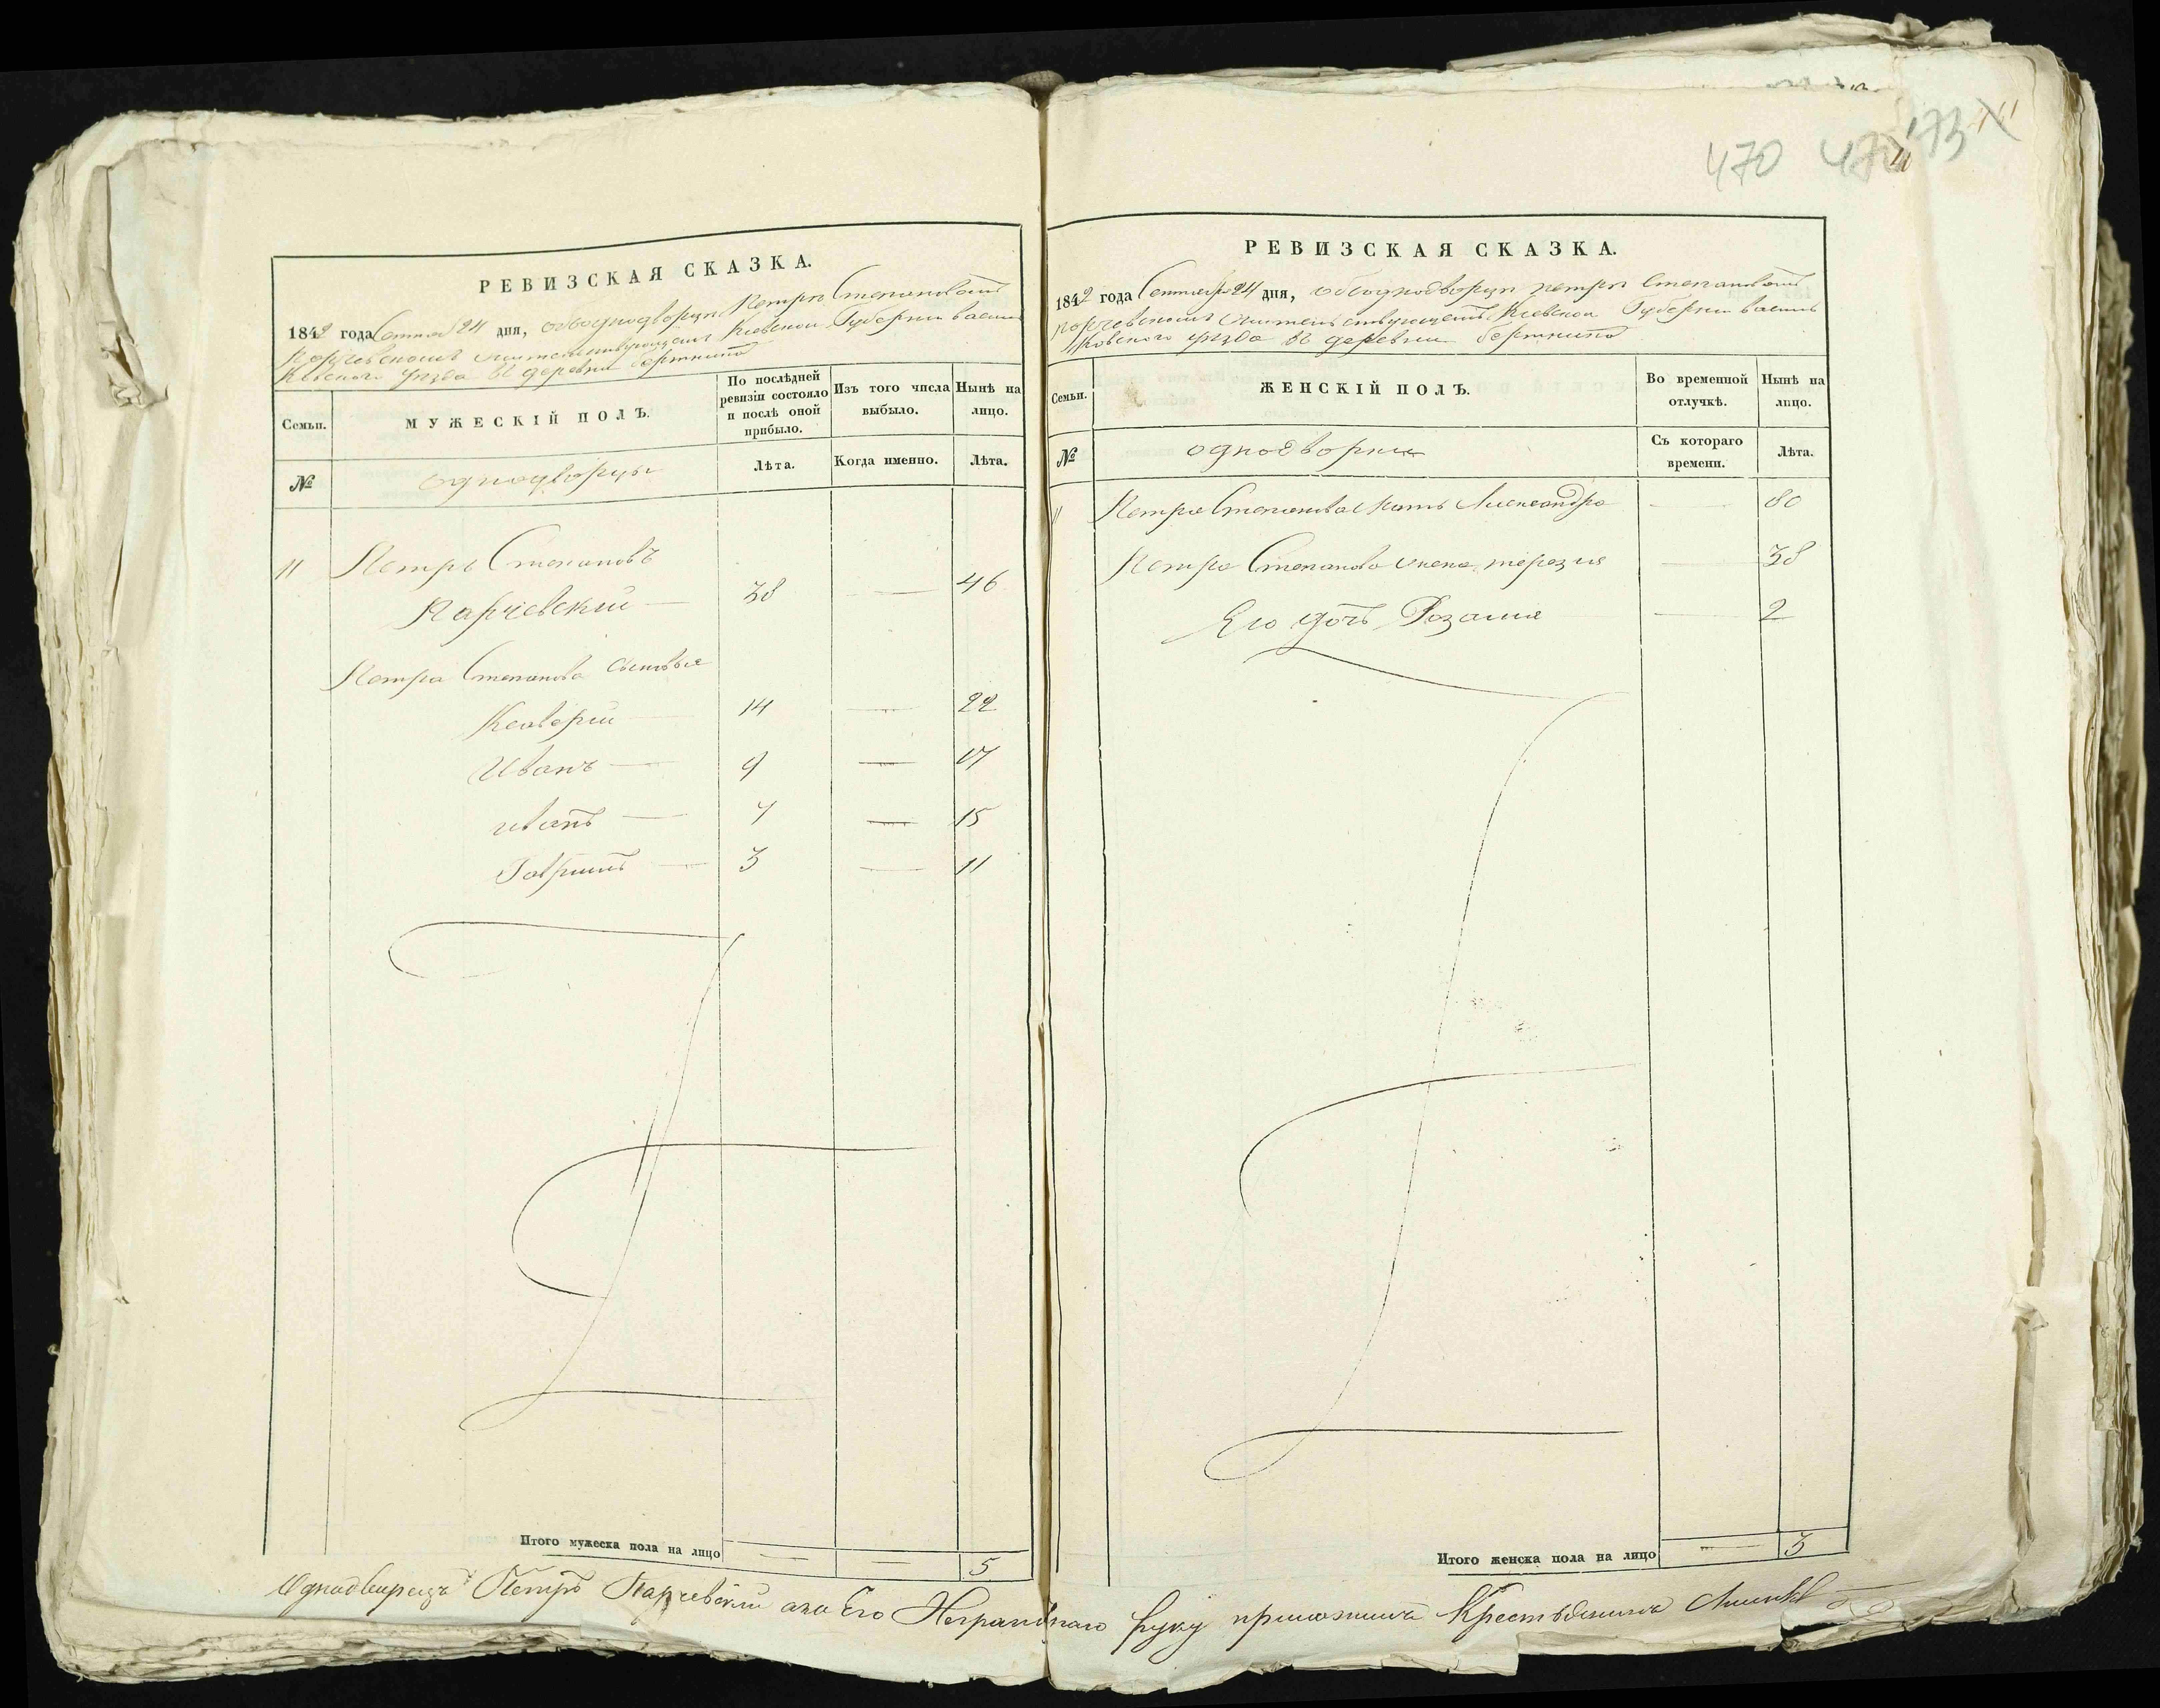 470 470 173
РЕВИЗСКАЯ СКАЗКА.
1842 года Сентяб 24 дня, объ однодворцѣ Петрѣ Степановомъ
Парчевскомъ жительствующемъ Кіевской Губерніи Василь
Ковского уѣзда въ деревни
Семьи. МУЖЕСКІЙ ПОЛЪ. По послѣдней ревизіи состояло и послѣ оной прибыло. Изъ того числа выбыло. Нынѣ на лицо.
№ однодворцы Лѣта. Когда именно. Лѣта.
11 Петръ Степановъ
Парчевскій — 38 — 46
Петра Степанова Сыновья
Ксаверій — 14 — 22
Иванъ — 9 — 17
иванъ — 7 — 15
Гаврiилъ — 3 — 11
Итого мужеска пола на лицо — — 5
РЕВИЗСКАЯ СКАЗКА.
1842 года Сентября 24 дня, объ однодворцѣ петрѣ Степановомъ
парчевскомъ жительствующемъ Кіевской Губерніи Василь
ковского уѣзда въ деревни
Семьи. ЖЕНСКІЙ ПОЛЪ. Во временной отлучкѣ. Нынѣ на лицо.
№ однодворки Съ котораго времени. Лѣта.
11 Петра Степанова Мать Александра — 80
Петра Степанова жена терезия — 38
Его дочь Розалия — 2
Итого женска пола на лицо — 3
Однодворецъ Петръ Парчевскій а за Его Неграмотнаго руку приложилъ Крестьянинъ